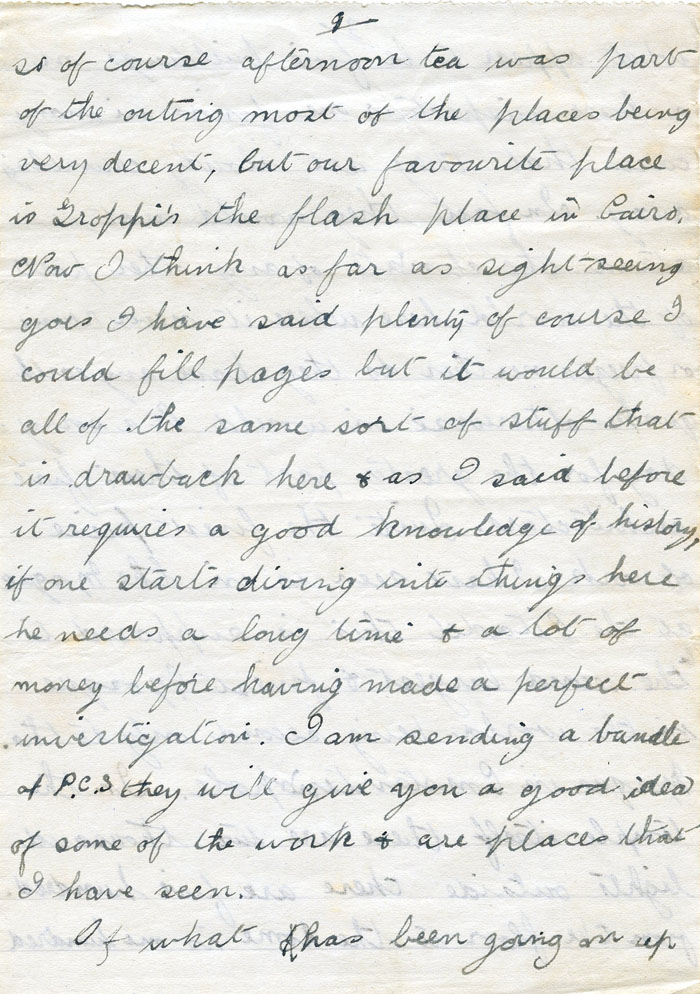 9
so of course afternoon tea was part
of the outing most of the places being
very decent, but our favourite place
is Groppi's the flash place in Cairo.
Now I think as far as sight-seeing
goes I have said plenty of course I
could fill pages but it would be
all of the same sort of stuff that
is drawback here & as I said before
it requires a good knowledge of history,
if one starts diving into things here
he needs a long time & a lot of
money before having made a perfect
investigation. I am sending a bundle
of P.C.S they will give you a good idea
of some of the work & are places that
I have seen.
Of what has been going on up